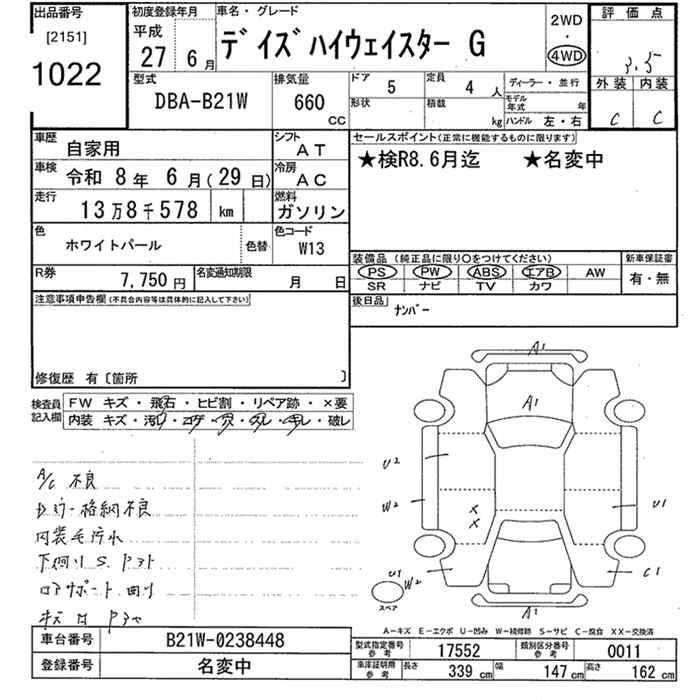 出品番号
[2151]
1022
初度登録年月
平成
27 6月
車名・グレード
デイズハイウェイスター G
2WD
・
4WD
評価点
3.5
外装 内装
C C
型式
DBA-B21W
排気量
660
CC
ドア 5
形状
定員 4 人
積載 kg
ディーラー・並行
モデル年式 年
ハンドル 左・右
車歴 自家用
シフト AT
車検 令和 8年 6月(29日)
冷房 AC
走行 13万8千578 km
燃料 ガソリン
色 ホワイトパール
色替
色コード W13
R券 7,750円
名変通知期限 月 日
セールスポイント(正常に機能するものに限ります)
★検R8.6月迄 ★名変中
装備品(純正品に限り○をつけてください)
PS PW ABS エアB AW
SR ナビ TV カワ
新車保証書
有・無
後日品
ナンバー
注意事項申告欄(不具合内容等は具体的に記入して下さい)
修復歴 有〔箇所 〕
検査員記入欄
FW キズ・飛石・ヒビ割・リペア跡・×要
内装 キズ・汚れ・コゲ・穴・スレ・キレ・破レ
A/C 不良
Dミラー格納不良
内装毛汚れ
A1
A1
U2
W2
X
X
U1
U1
W2
C1
スペア
A1
A-キズ E-エクボ U-凹み W-補修跡 S-サビ C-腐食 XX-交換済
車台番号 B21W-0238448
登録番号 名変中
型式指定番号 参考 17552
類別区分番号 参考 0011
車庫証明用 参考 長さ 339 cm 幅 147 cm 高さ 162 cm